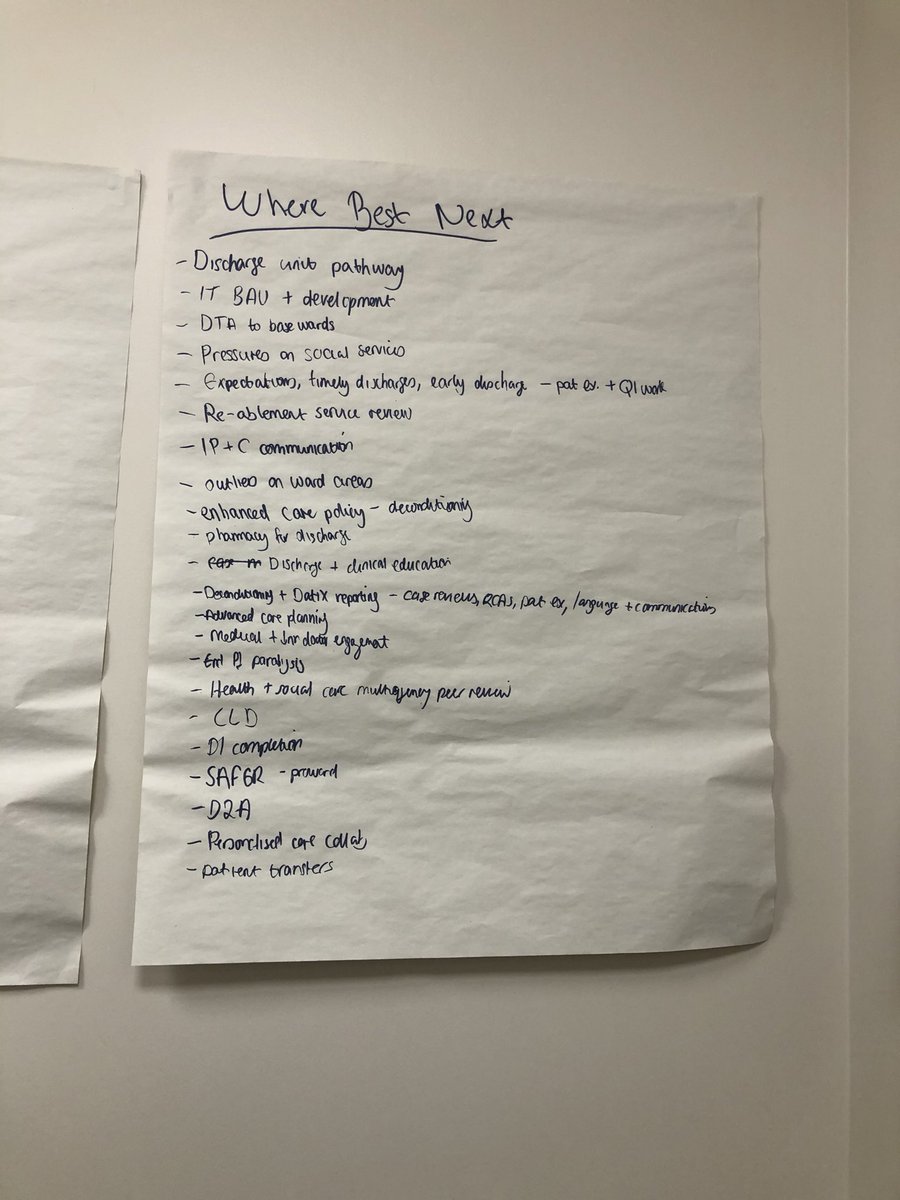 Where Best Next
- Discharge unit pathway
- IT BAU + development
- DTA to base wards
- Pressures on social services
- Expectations, timely discharges, early discharge - pat ex. + QI work
- Re-ablement service review
- IP+C communication
- outliers on ward areas
- enhanced care policy - deconditioning
- pharmacy for discharge
- Discharge + clinical education
- Deconditioning + Datix reporting - case reviews, RCAs, pat ex, language + communication
- Advanced care planning
- Medical + Jnr doctor engagement
- End PJ paralysis
- Health + social care multiagency peer review
- CLD
- D1 completion
- SAFER - proward
- D2A
- Personalised care collab
- patient transfers